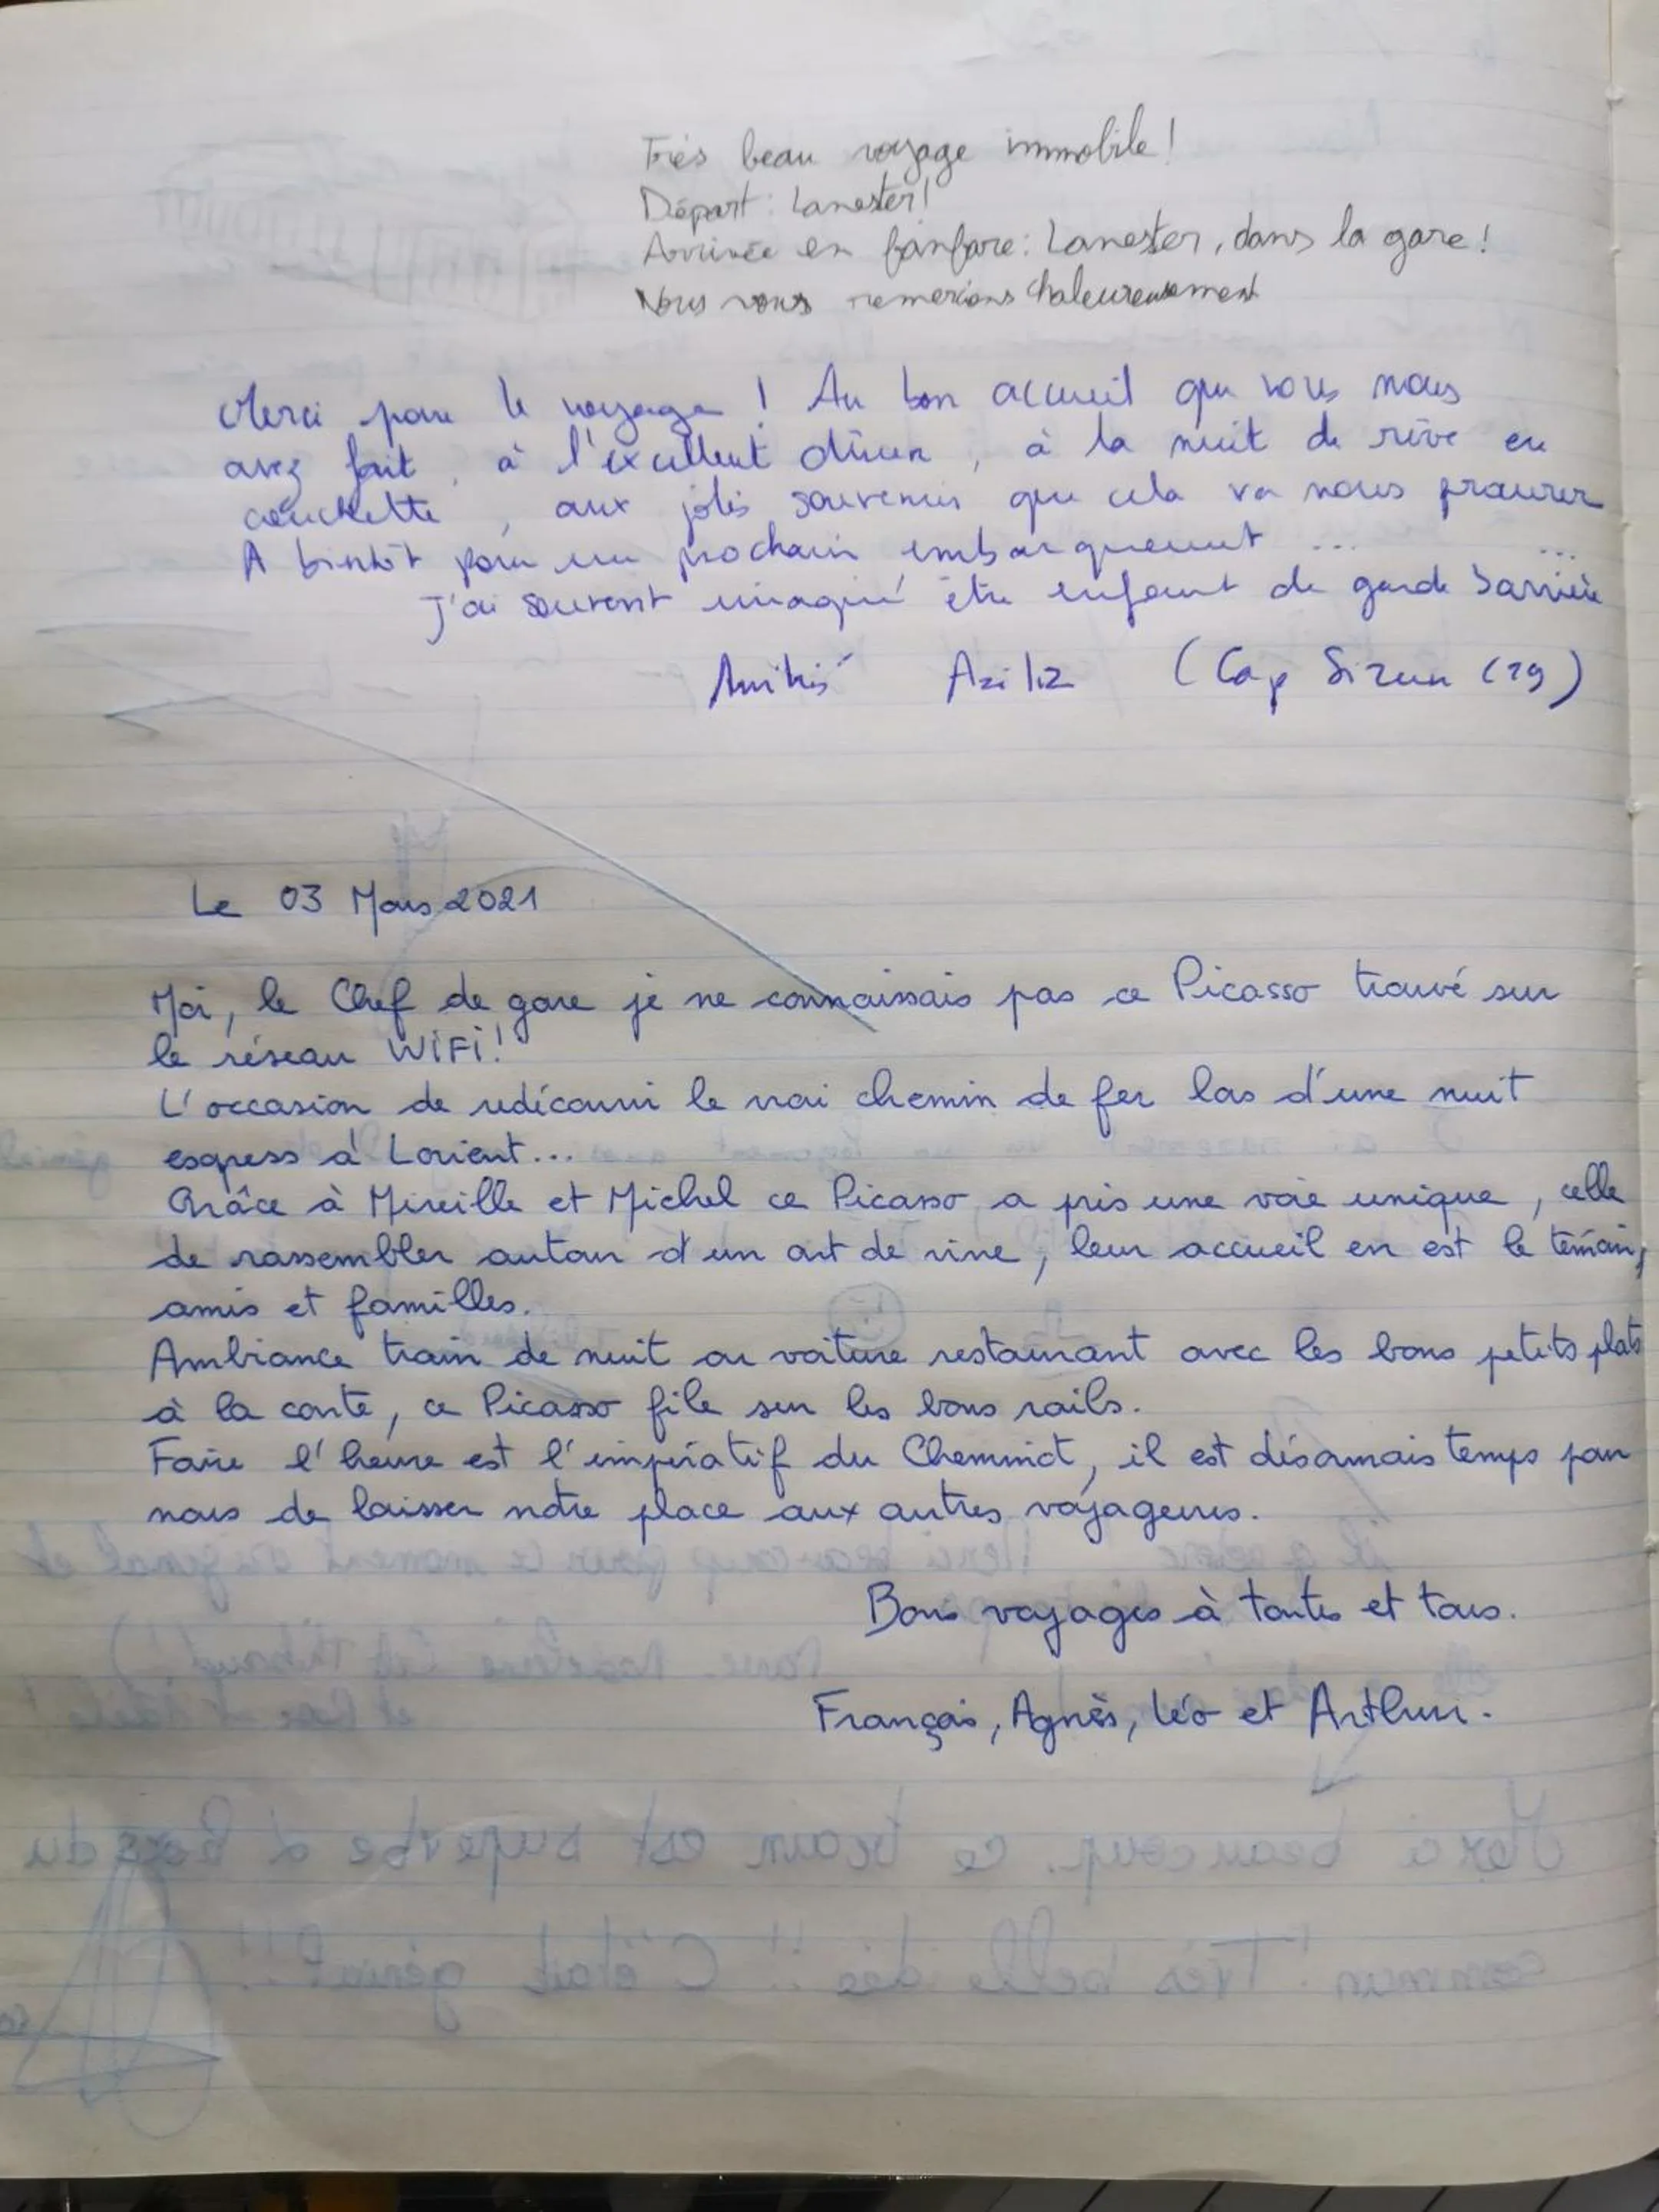 Très beau voyage immobile!
Départ: Lanester!
Arrivée en fanfare: Lanester, dans la gare!
Nous vous remercions chaleureusement
Merci pour le voyage ! Au bon accueil que vous nous
avez fait, à l'excellent dîner, à la nuit de rêve en
couchette, aux jolis souvenirs que cela va nous procurer
A bientôt pour un prochain embarquement ... ...
J'ai souvent imaginé être enfant de garde barrière
Aziliz (Cap Sizun (29)
Le 03 Mars 2021
Moi, le Chef de gare je ne connaissais pas ce Picasso trouvé sur
le réseau WiFi!
L'occasion de redécouvrir le vrai chemin de fer lors d'une nuit
express à Lorient...
Grâce à Mireille et Michel ce Picasso a pris une voie unique, celle
de rassembler autour d'un art de vivre, leur accueil en est le témoin,
amis et familles.
Ambiance train de nuit ou voiture restaurant avec les bons petits plats
à la carte, ce Picasso file sur les bons rails.
Faire l'heure est l'impératif du Cheminot, il est désormais temps pour
nous de laisser notre place aux autres voyageurs.
Bons voyages à toutes et tous.
François, Agnès, Léo et Arthur.